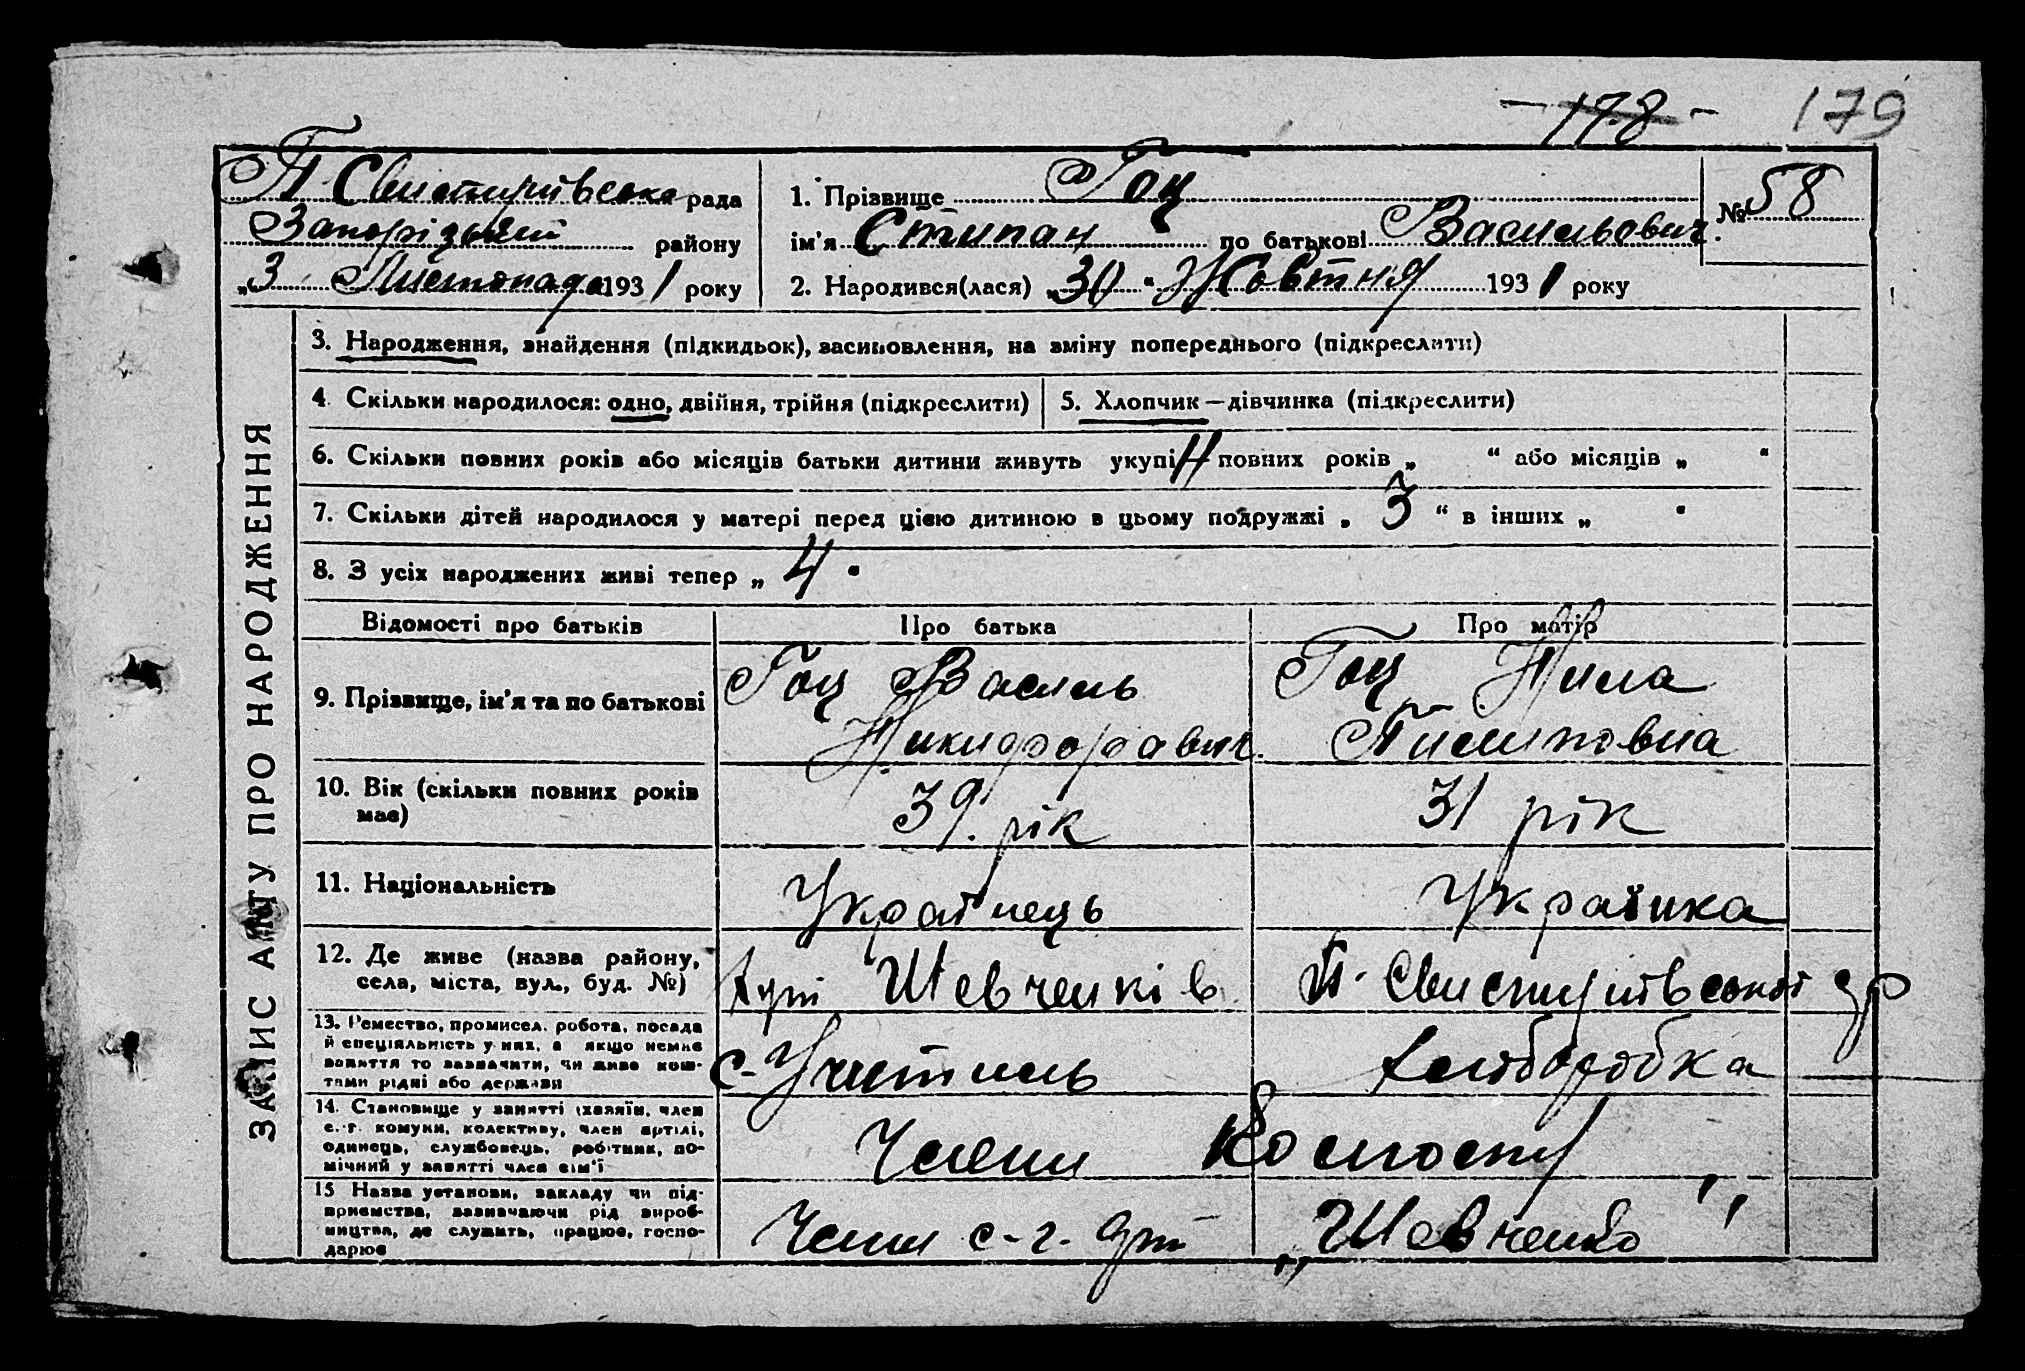 - 178 - 179
П. Свистунівська рада
Запорізький району
„3 Листопада 1931 року
1. Прізвище Гоц
ім'я Степан по батькові Васильович
№ 58
2. Народився(лася) „30“ Жовтня 1931 року
ЗАПИС АКТУ ПРО НАРОДЖЕННЯ
3. Народження, знайдення (підкидьок), засиновлення, на зміну попереднього (підкреслити)
4. Скільки народилося: одно, двійня, трійня (підкреслити)
5. Хлопчик — дівчинка (підкреслити)
6. Скільки повних років або місяців батьки дитини живуть укупі 11 повних років „ “ або місяців „ “
7. Скільки дітей народилося у матері перед цією дитиною в цьому подружжі „ 3 “ в інших „ “
8. З усіх народжених живі тепер „ 4 “
Відомості про батьків Про батька Про матір
9. Прізвище, ім'я та по батькові
Гоц Василь
Никифорович
Гоц
Пилиповна
10. Вік (скільки повних років
має)
39. рік
31 рік
11. Національність
Українець
Украінка
12. Де живе (назва району,
села, міста, вул., буд. №)
Хут Шевченків
П. Свистунівської ср
13. Ремество, промисел, робота, посада
й спеціяльність у них, а якщо немає
заняття то зазначити, чи живе кош-
тами рідні або держави
Хліборобка
14. Становище у занятті (хазяїн, член
с.-г. комуни, колективу, член артілі,
одинець, службовець, робітник, по-
мічний у занятті член сім'ї
Член Колгоспу
15 Назва установи, закладу чи під-
приємства, зазначаючи рід вироб-
ництва, де служить, працює, госпо-
дарює
Член с-г. Арт „Шевченко“